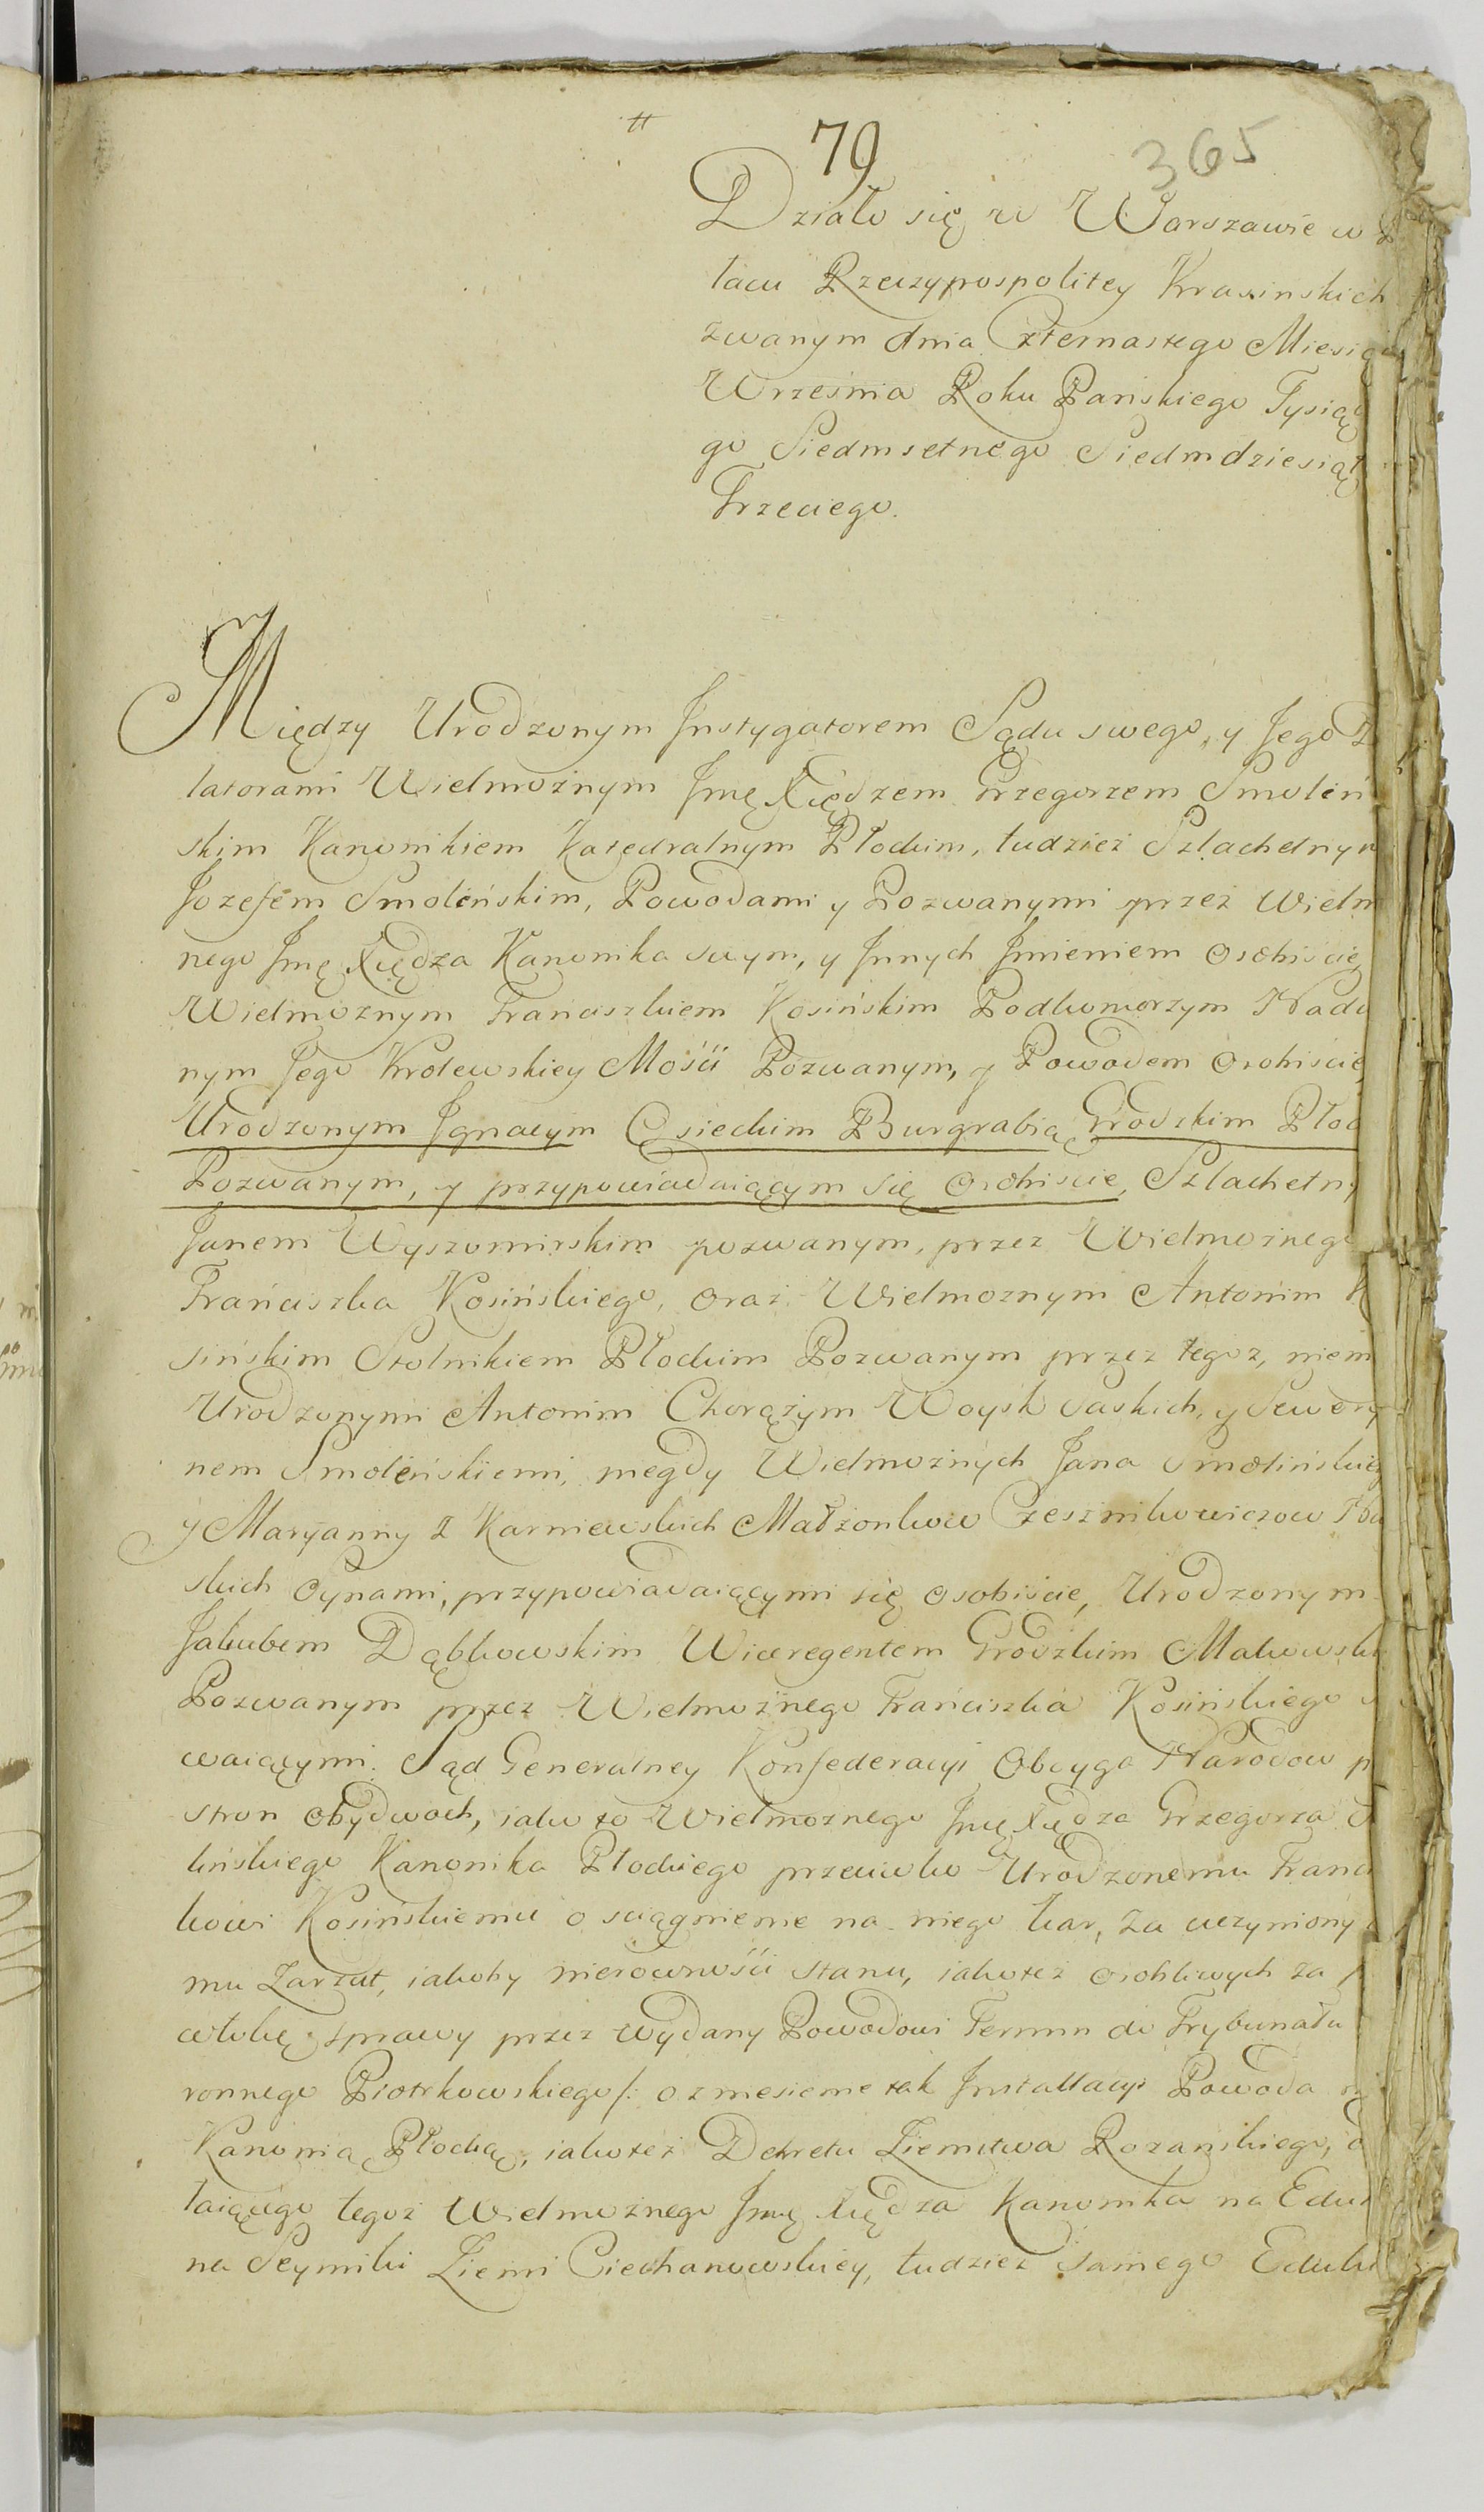 79
365
Działo się w Warszawie w
łacu Rzeczypospolitey Krasinskich
zwanym dnia Czternastego Miesią
Wrzesnia Roku Pańskiego Tysiąc
go Siedmsetnego Siedmdziesiąt
Trzeciego.
Między Urodzonym Instygatorem Sądu swego, y Jego
latorami Wielmożnym Jmę Xiędzem Grzegorzem Smoleń
skim Kanonikiem Katedralnym Płockim, tudzież Szlachetnym
Jozefem Smoleńskim, Powodami y Pozwanymi przez Wielm
nego Jmę Xiędza Kanonika swym, y Innych Imieniem Osobiście,
Wielmożnym Franciszkiem Kosińskim Podkomorzym Nadw
nym Jego Krolewskiey Mości Pozwanym, y Powodem Osobiście,
Urodzonym Ignacym Cysieckim Burgrabią Grodzkim Płoc
Pozwanym, y przypowiadaiącym się Osobiscie, Szlachetny
Janem Wyszomirskim pozwanym, przez Wielmożnego
Franciszka Kosińskiego, oraz Wielmoznym Antonim K
sińskim Stolnikiem Płockim Pozwanym przez tegoz, niem
Urodzonymi Antonim Chorążym Woysk Saskich, y Sewery
nem Smoleńskiemi, niegdy Wielmożnych Jana Smolińskieg
y Maryanny z Karniewskich Małżonkow Czesznikowiczow
skich Synami, przypowiadaiącymi się osobiście, Urodzonym
Jakubem Dąbkowskim Wiceregentem Grodzkim Makowski
Pozwanym przez Wielmożnego Franciszka Kosińskiego
waiącymi. Sąd Generalney Konfederacyi Oboyga Narodow p
stron Obydwoch, iako to Wielmożnego Jmę Xiędza Grzegorza
lińskiego Kanonika Płockiego przeciwko Urodzonemu Franci
kowi Kosińskiemu o sciągnienie na niego kar, za uczyniony
mu Zarzut, iakoby nierowności stanu, iakoteż osobliwych za
włokę sprawy przez wydany Powodowi Termin do Trybunału
ronnego Piotrkowskiego /: o zniesienie tak Installacyi Powoda
Kanonią Płocką, iakoteż Dekretu Ziemstwa Rozanskiego,
łaiącego tegoż Wielmożnego Jmę Xiędza Kanonika na
na Seymiki Ziemi Ciechanowskiey, tudzież samego